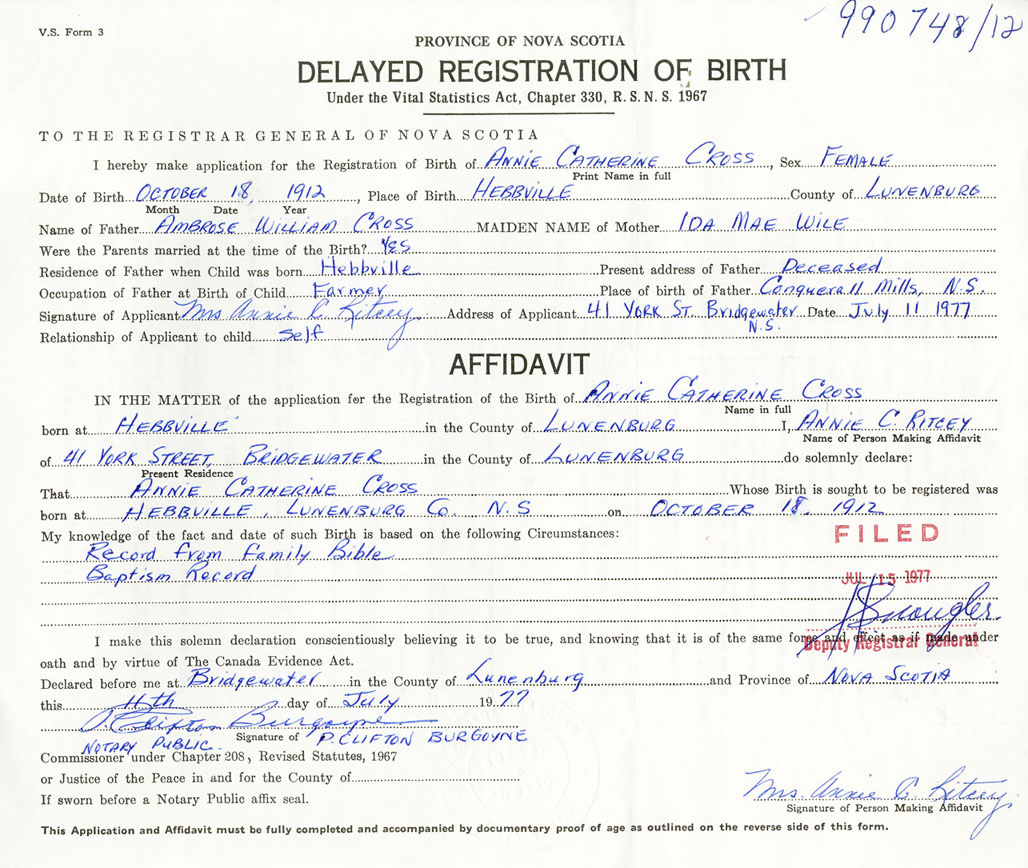 V.S. Form 3
990748/12
PROVINCE OF NOVA SCOTIA
DELAYED REGISTRATION OF BIRTH
Under the Vital Statistics Act, Chapter 330, R.S.N.S. 1967
TO THE REGISTRAR GENERAL OF NOVA SCOTIA
I hereby make application for the Registration of Birth of ANNIE CATHERINE CROSS, Sex FEMALE
Print Name in full
Date of Birth OCTOBER 18, 1912, Place of Birth HEBBVILLE County of LUNENBURG
Month Date Year
Name of Father AMBROSE WILLIAM CROSS MAIDEN NAME of Mother IDA MAE WILE
Were the Parents married at the time of the Birth? YES
Residence of Father when Child was born Hebbville Present address of Father Deceased
Occupation of Father at Birth of Child Farmer Place of birth of Father Conquerall Mills, N.S.
Signature of Applicant Mrs Annie C. Ritcey Address of Applicant 41 YORK ST. Bridgewater Date July 11 1977
N.S.
Relationship of Applicant to child self
AFFIDAVIT
IN THE MATTER of the application for the Registration of the Birth of ANNIE CATHERINE CROSS
Name in full
born at HEBBVILLE in the County of LUNENBURG I, ANNIE C. RITCEY
Name of Person Making Affidavit
of 41 YORK STREET, BRIDGEWATER in the County of LUNENBURG do solemnly declare:
Present Residence
That ANNIE CATHERINE CROSS Whose Birth is sought to be registered was
born at HEBBVILLE, LUNENBURG Co. N.S on OCTOBER 18, 1912
My knowledge of the fact and date of such Birth is based on the following Circumstances:
FILED
Record from Family Bible
Baptism Record
JUL 15 1977
I make this solemn declaration conscientiously believing it to be true, and knowing that it is of the same force and effect as if made under
Deputy Registrar General
oath and by virtue of The Canada Evidence Act.
Declared before me at Bridgewater in the County of Lunenburg and Province of NOVA SCOTIA
this 11th day of July 1977
P. Clifton Burgoyne
Signature of P. CLIFTON BURGOYNE
NOTARY PUBLIC.
Commissioner under Chapter 208, Revised Statutes, 1967
or Justice of the Peace in and for the County of
If sworn before a Notary Public affix seal.
Mrs. Annie C. Ritcey
Signature of Person Making Affidavit
This Application and Affidavit must be fully completed and accompanied by documentary proof of age as outlined on the reverse side of this form.